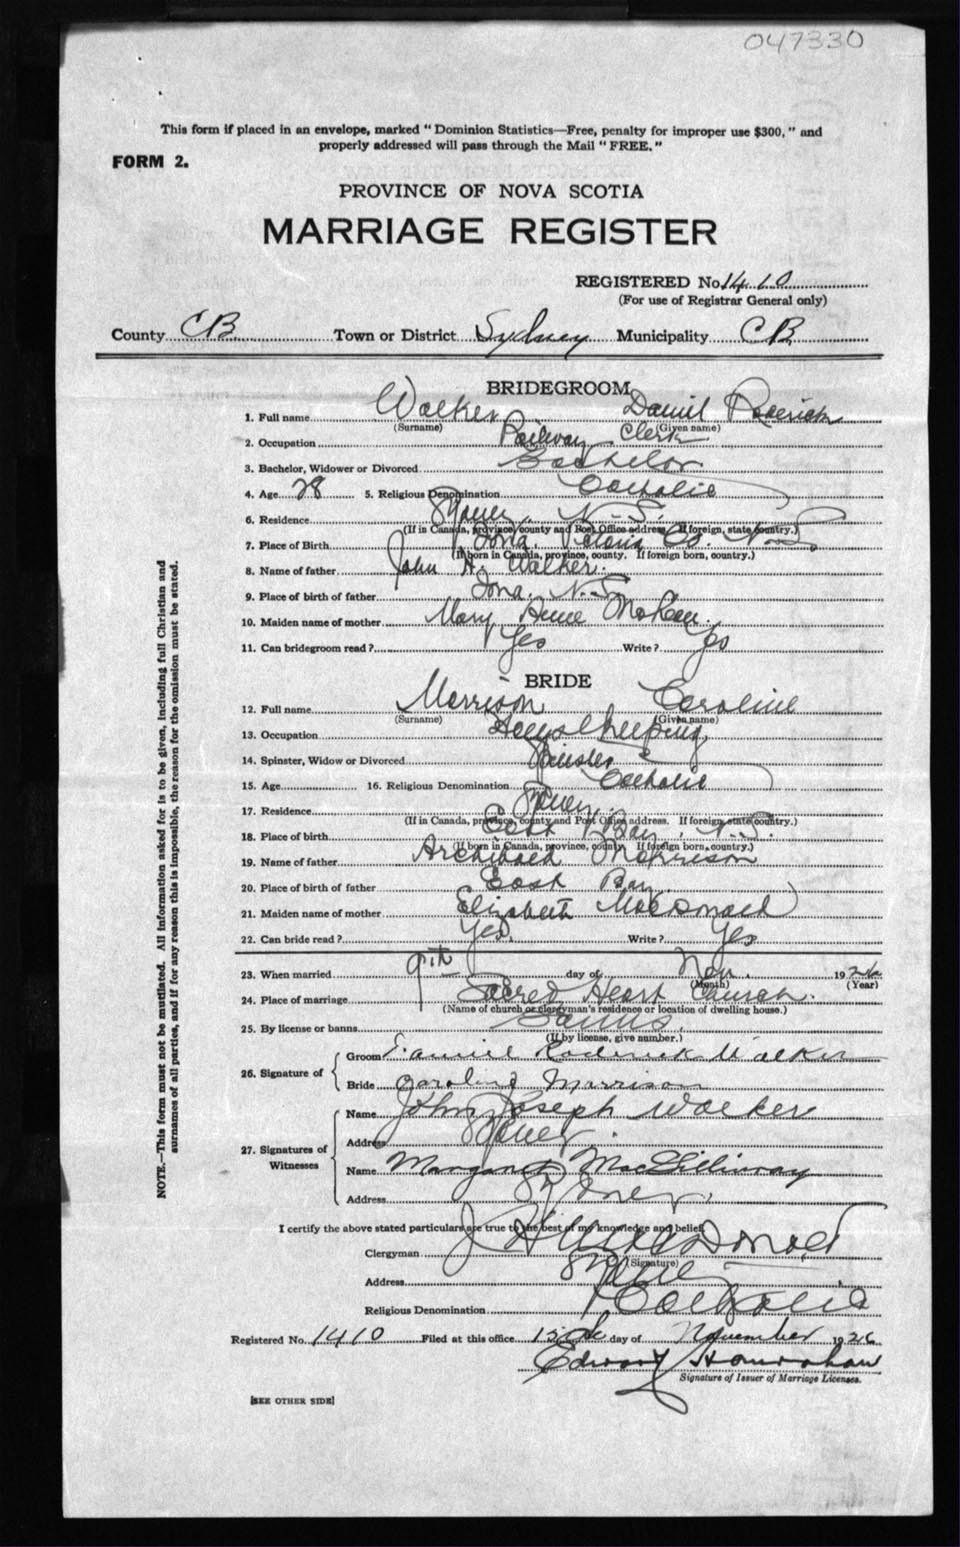 047330
This form if placed in an envelope, marked "Dominion Statistics—Free, penalty for improper use $300," and
properly addressed will pass through the Mail "FREE."
FORM 2.
PROVINCE OF NOVA SCOTIA
MARRIAGE REGISTER
REGISTERED No. 1410
(For use of Registrar General only)
County CB Town or District Sydney Municipality CB
BRIDEGROOM
1. Full name Walker Daniel Roderick
(Surname) (Given name)
2. Occupation Railway Clerk
3. Bachelor, Widower or Divorced Bachelor
4. Age 28 5. Religious Denomination Catholic
6. Residence Sydney, N.S.
(If in Canada, province, county and Post Office address. If foreign, state country.)
7. Place of Birth Iona, Victoria Co. N.S.
(If born in Canada, province, county. If foreign born, country.)
8. Name of father John H. Walker.
9. Place of birth of father Iona. N.S.
10. Maiden name of mother Mary Anne
11. Can bridegroom read? Yes Write? Yes
BRIDE
12. Full name Morrison Caroline
(Surname) (Given name)
13. Occupation Housekeeping
14. Spinster, Widow or Divorced Spinster
15. Age 16. Religious Denomination Catholic
17. Residence Sydney
(If in Canada, province, county and Post Office address. If foreign, state country.)
18. Place of birth East Bay, N.S.
(If born in Canada, province, county. If foreign born, country.)
19. Name of father Archibald Morrison
20. Place of birth of father East Bay
21. Maiden name of mother Elizabeth MacDonald
22. Can bride read? Yes. Write? Yes
23. When married 9th day of Nov. 1926
(Month) (Year)
24. Place of marriage Sacred Heart Church.
(Name of church or clergyman's residence or location of dwelling house.)
25. By license or banns Banns.
(If by license, give number.)
26. Signature of
Groom Daniel Roderick Walker
Bride Caroline Morrison
27. Signatures of Witnesses
Name John Joseph Walker
Address Sydney.
Name Margaret MacGillivray
Address Sydney.
I certify the above stated particulars are true to the best of my knowledge and belief.
Clergyman J H MacDonald
(Signature)
Address Sydney
Religious Denomination Catholic
Registered No. 1410 Filed at this office 12th day of November 1926
Edward Hanrahan
Signature of Issuer of Marriage Licenses.
[SEE OTHER SIDE]
NOTE.—This form must not be mutilated. All information asked for is to be given, including full Christian and
surnames of all parties, and if for any reason this is impossible, the reason for the omission must be stated.